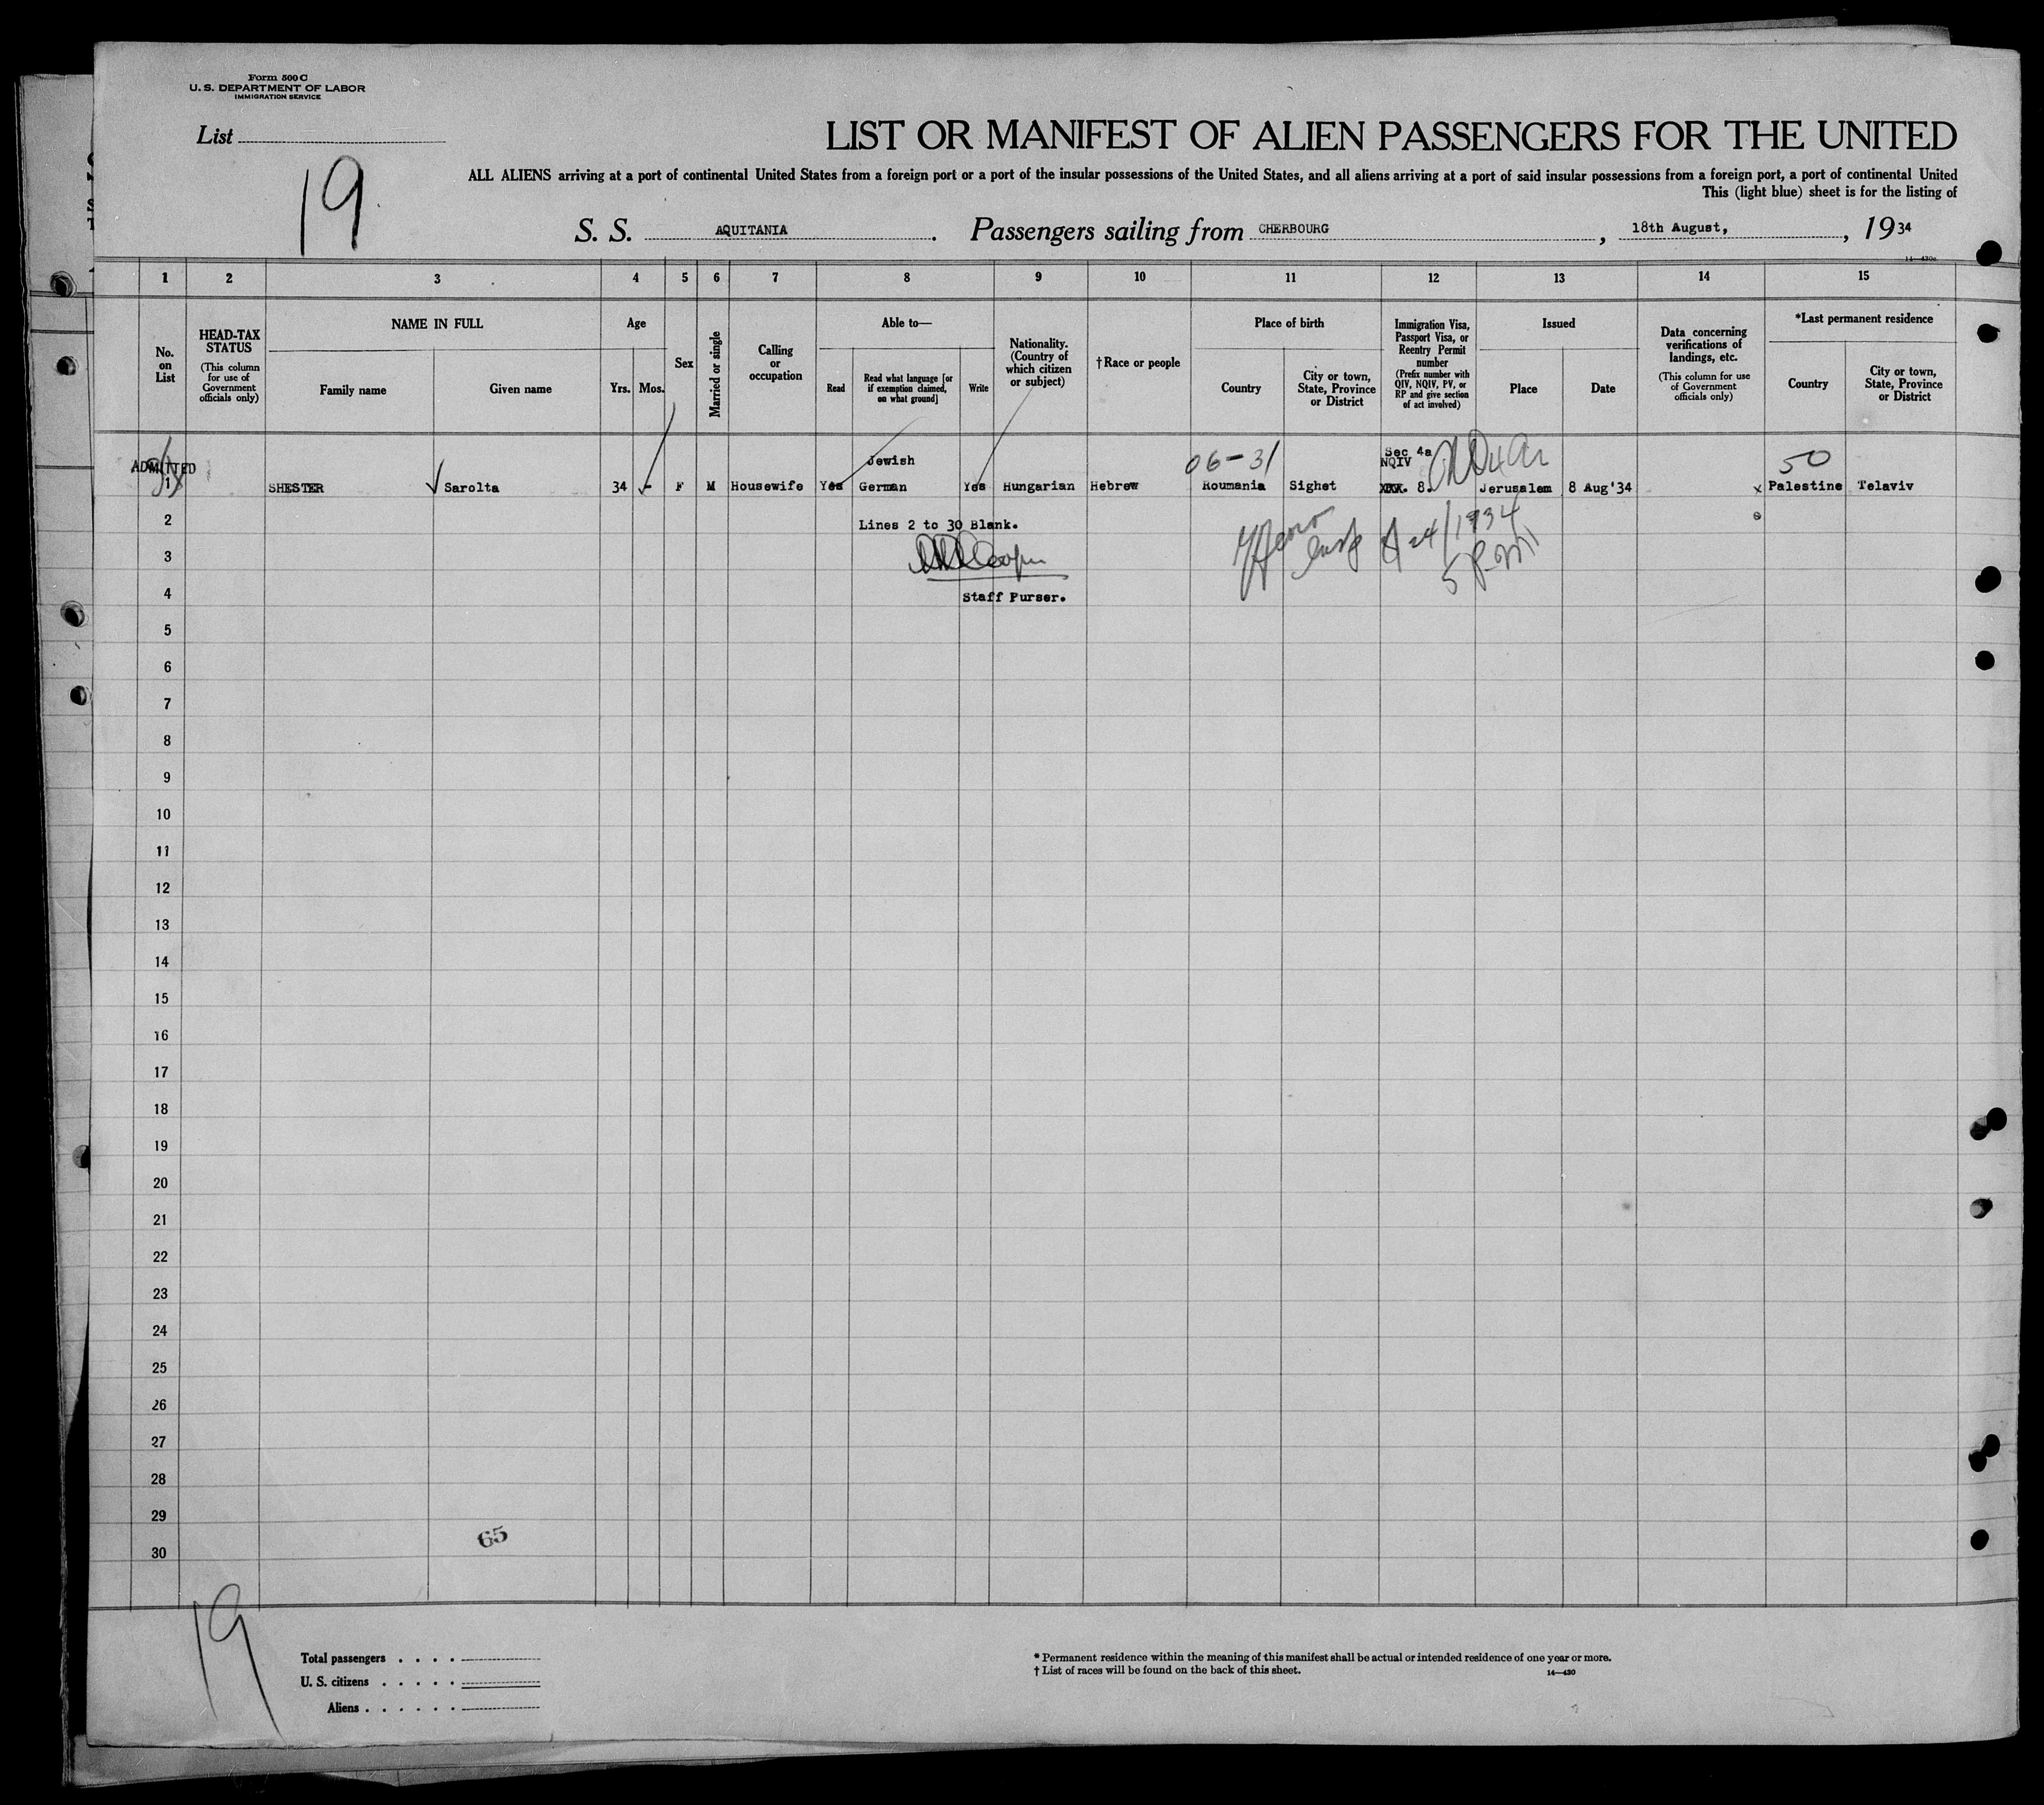 Form 500 C
U. S. DEPARTMENT OF LABOR
IMMIGRATION SERVICE
List
19
LIST OR MANIFEST OF ALIEN PASSENGERS FOR THE UNITED
ALL ALIENS arriving at a port of continental United States from a foreign port or a port of the insular possessions of the United States, and all aliens arriving at a port of said insular possessions from a foreign port, a port of continental United
This (light blue) sheet is for the listing of
S. S. AQUITANIA. Passengers sailing from CHERBOURG, 18th August, , 1934
14—430a
1 2 3 4 5 6 7 8 9 10 11 12 13 14 15
No. on List
HEAD-TAX STATUS
(This column for use of Government officials only)
NAME IN FULL
Family name
Given name
Age
Yrs. Mos.
Sex
Married or single
Calling or occupation
Able to—
Read
Read what language [or if exemption claimed, on what ground]
Write
Nationality. (Country of which citizen or subject)
†Race or people
Place of birth
Country
City or town, State, Province or District
Immigration Visa, Passport Visa, or Reentry Permit number
(Prefix number with QIV, NQIV, PV, or RP and give section of act involved)
Issued
Place
Date
Data concerning verifications of landings, etc.
(This column for use of Government officials only)
*Last permanent residence
Country
City or town, State, Province or District
ADMITTED
Jewish
06-31
Sec 4a
NQIV
50
1 SHESTER Sarolta 34 - F M Housewife Yes German Yes Hungarian Hebrew Roumania Sighet 8. Jerusalem 8 Aug'34 x Palestine Telaviv
2 Lines 2 to 30 Blank.
24/1934
3
5 P.M
4 Staff Purser.
5
6
7
8
9
10
11
12
13
14
15
16
17
18
19
20
21
22
23
24
25
26
27
28
29
65
30
19
Total passengers . . . .
U. S. citizens . . . . .
Aliens . . . . . .
* Permanent residence within the meaning of this manifest shall be actual or intended residence of one year or more.
† List of races will be found on the back of this sheet.
14—430